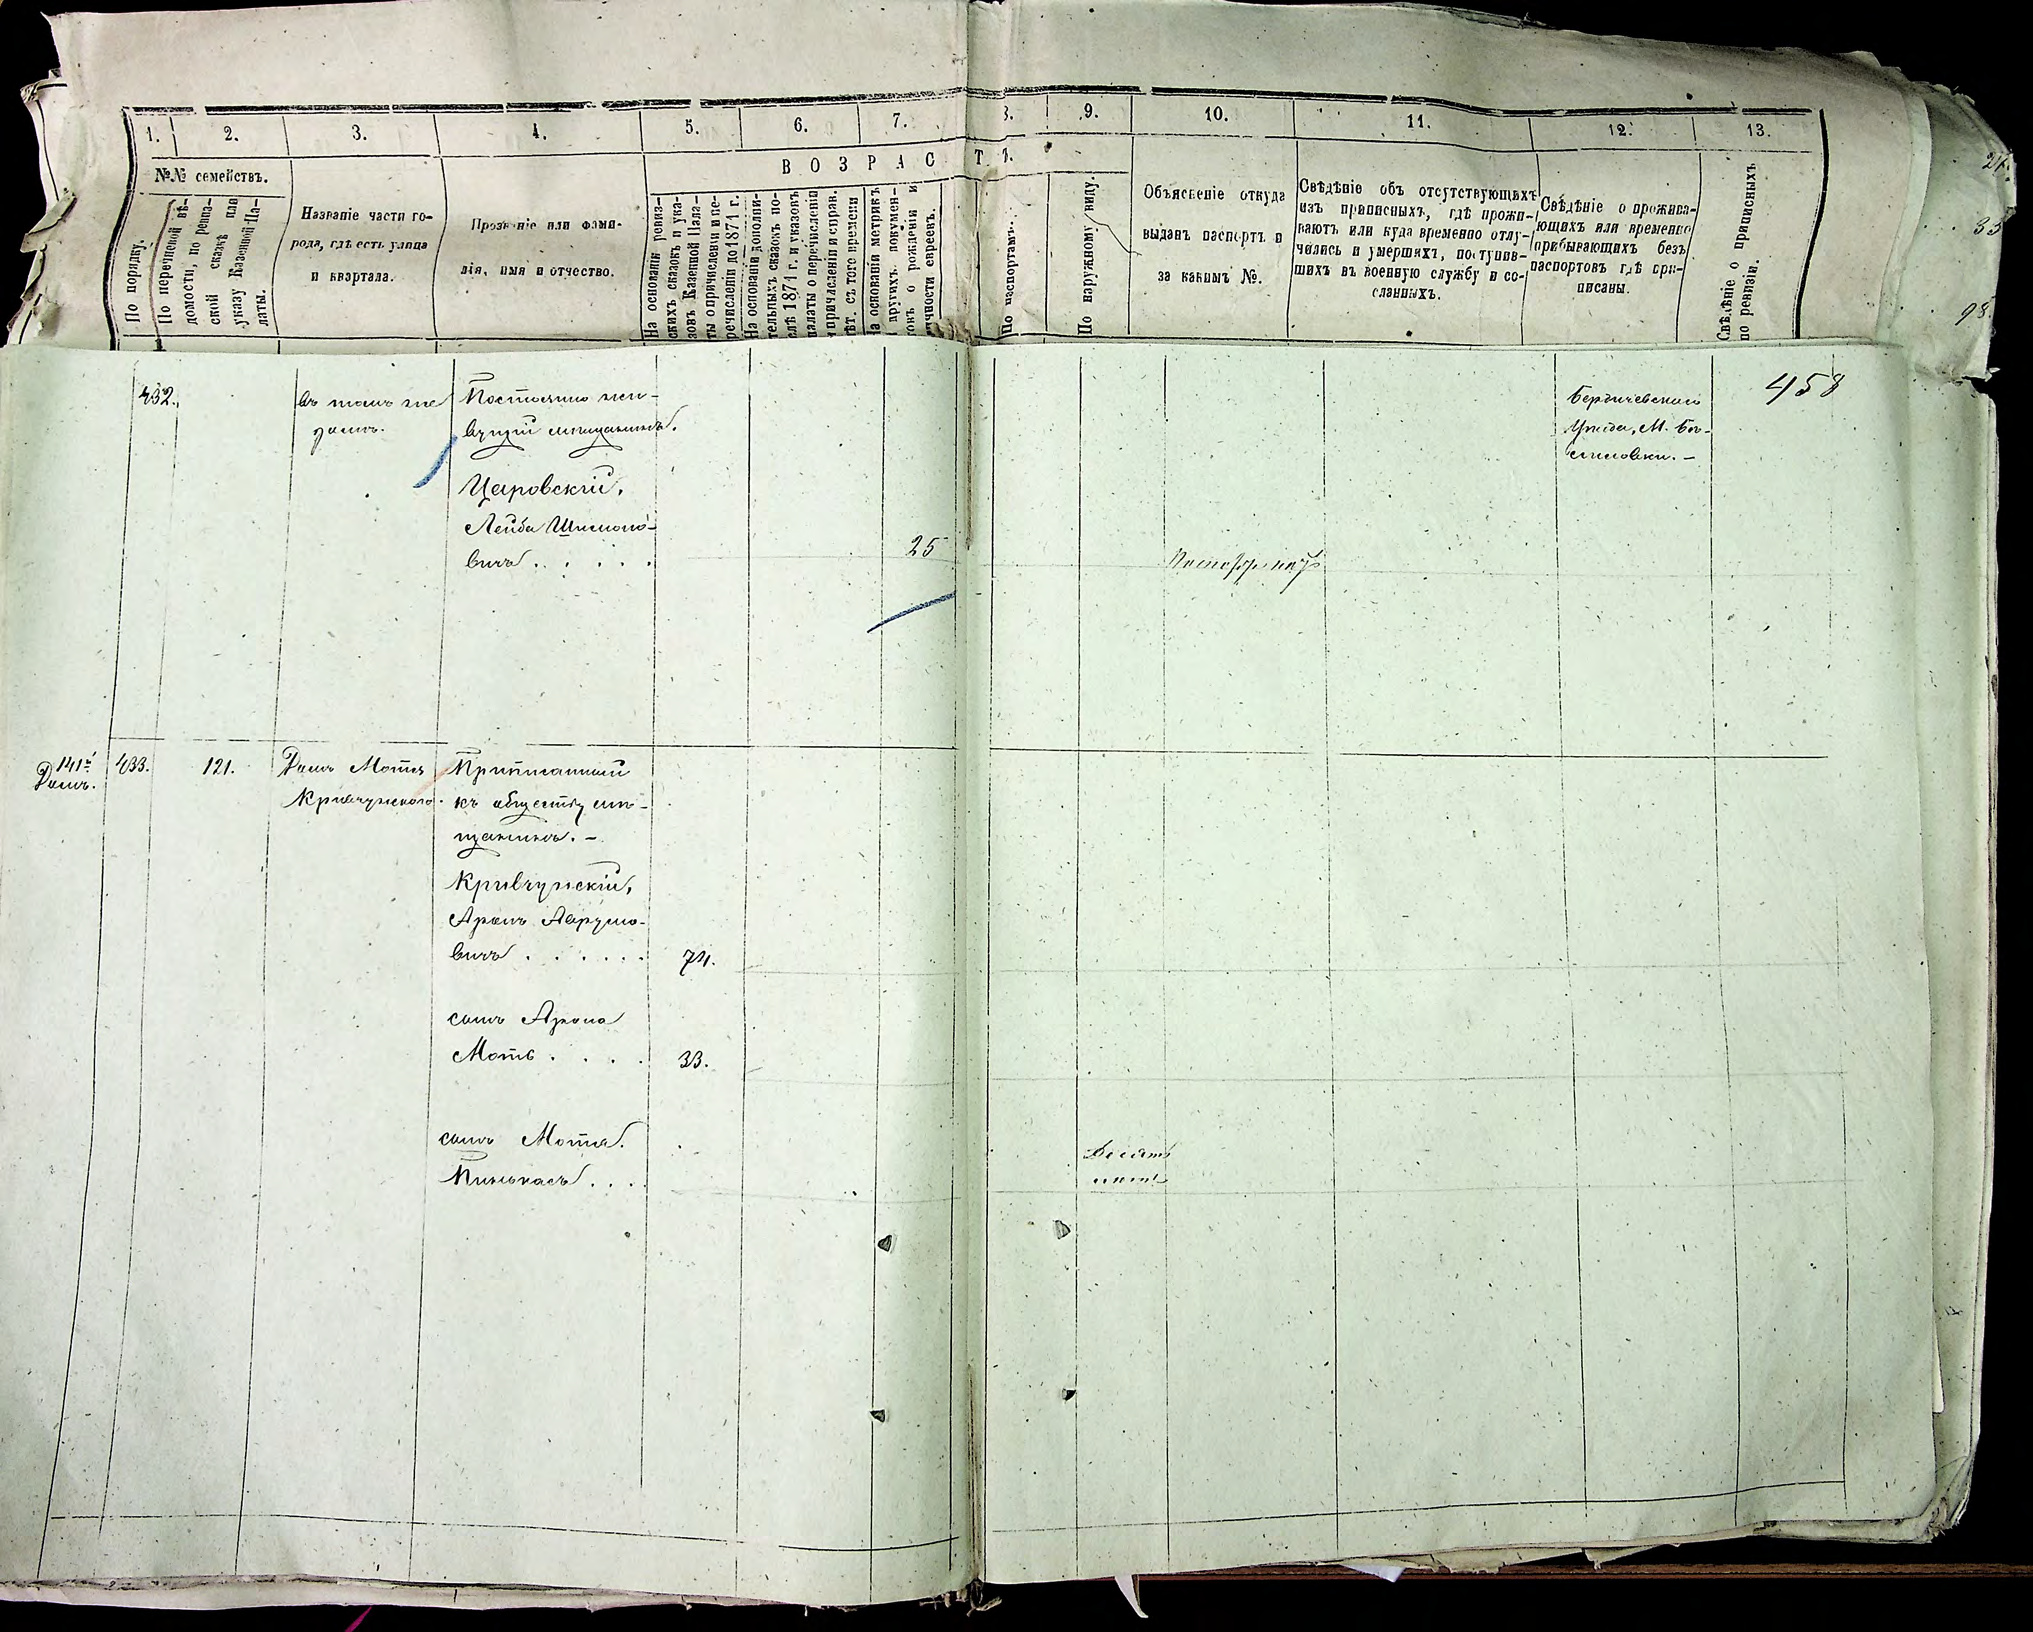 1. 2. 3. 4. 5. 6. 7. 8. 9. 10. 11. 12. 13.
ВОЗРАСТЪ.
№№ семействъ.
По порядку.
По перечневой вѣ-
домости, по ревиз-
ской сказкѣ или
указу Казенной Па-
латы.
Названіе части го-
рода, гдѣ есть улица
и квартала.
Прозваніе или фами-
лія, имя и отчество.
На основаніи ревиз-
скихъ сказокъ и ука-
зовъ Казенной Пала-
ты о причисленіи и пе-
речисленіи до 1871 г.
На основаніи дополни-
тельныхъ сказокъ по-
слѣ 1871 г. и указовъ
палаты о перечисленіи
и причисленіи и справ.
лѣт. съ того времени
На основаніи метрикъ
и другихъ докумен-
товъ о рожденіи и
личности евреевъ.
По паспортамъ.
По наружному виду.
Объясненіе откуда
выданъ паспортъ и
за какимъ №.
Свѣдѣніе объ отсутствующихъ
изъ приписныхъ, гдѣ прожи-
ваютъ или куда временно отлу-
чились и умершихъ, поступив-
шихъ въ военную службу и со-
сланныхъ.
Свѣдѣніе о прожива-
ющихъ или временно
прибывающихъ безъ
паспортовъ гдѣ при-
писаны.
Свѣдѣніе о приписныхъ
по ревизіи.
24.
33
98.
458
432.
въ томъ же
домѣ.
Постоянно жи-
вущій мѣщанинъ.
Царовскій,
Лейба Шмоно-
вичъ . . . . .
25
Бердичевскаго
Уѣзда, М. Бѣ-
лиловки. –
141й
Домъ.
433.
121.
Домъ Мотя
Кривчунскаго.
Приписанный
къ обществу мѣ-
щанинъ. –
Кривчунскій,
Аронъ Аврумо-
вичъ . . . . . .
74.
сынъ Арона
Моть . . . .
33.
сынъ Мотя.
Пинькасъ . . .
Десять
лѣтъ